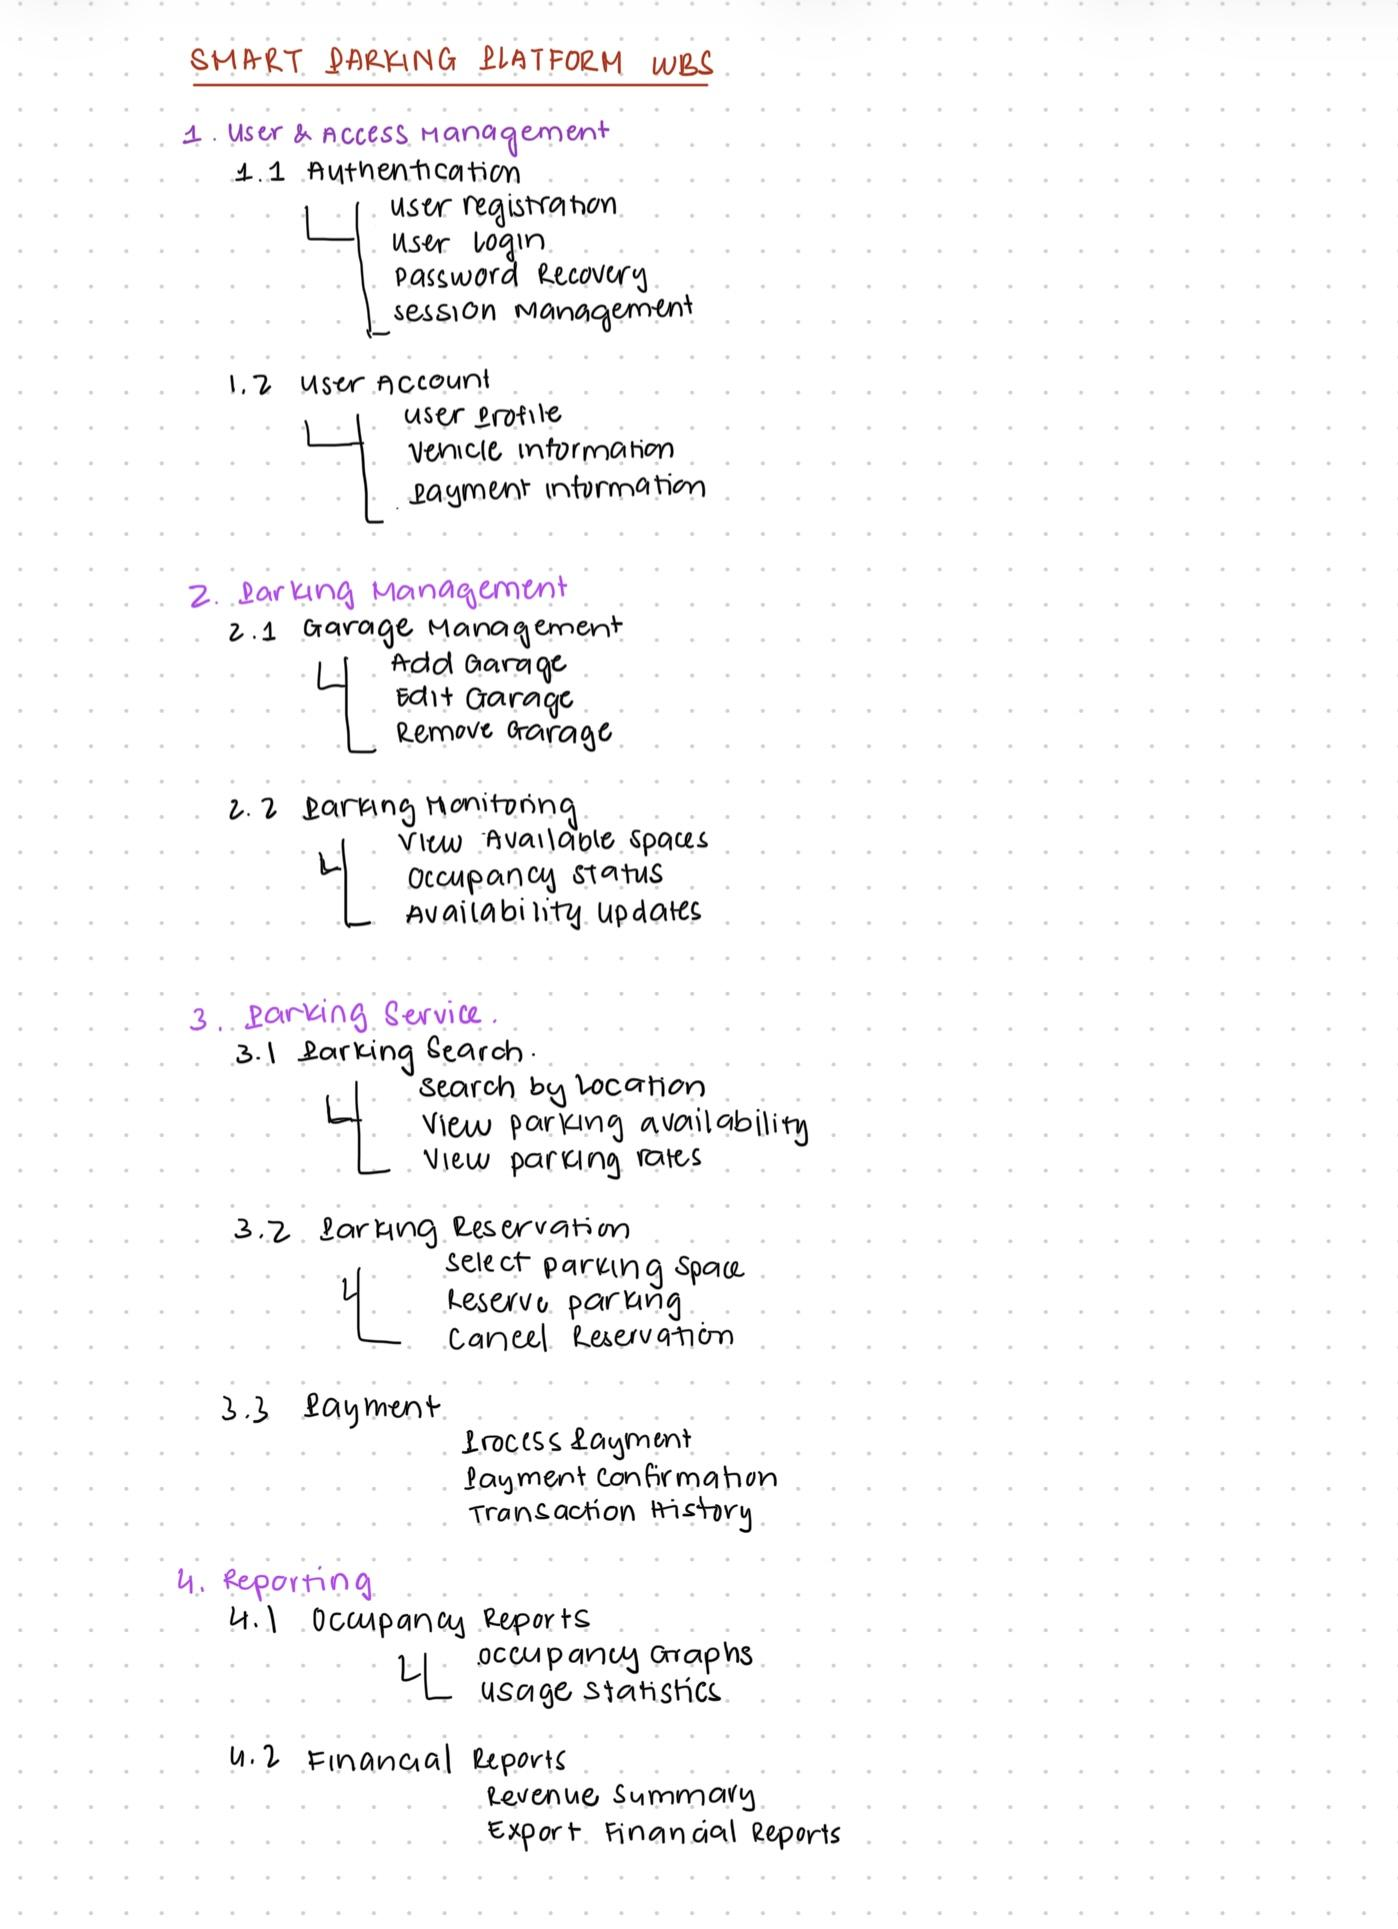 SMART PARKING PLATFORM WBS
1. User & Access Management
1.1 Authentication
user registration
User Login
Password Recovery
session Management
1.2 User Account
user Profile
Vehicle information
Payment information
2. Parking Management
2.1 Garage Management
Add Garage
Edit Garage
Remove Garage
2.2 Parking Monitoring
View Available Spaces
Occupancy Status
Availability updates
3. Parking Service.
3.1 Parking Search.
Search by Location
View parking availability
View parking rates
3.2 Parking Reservation
Select parking space
Reserve parking
Cancel Reservation
3.3 Payment
Process Payment
Payment Confirmation
Transaction History
4. Reporting
4.1 Occupancy Reports
Occupancy Graphs
usage statistics
4.2 Financial Reports
Revenue Summary
Export Financial Reports